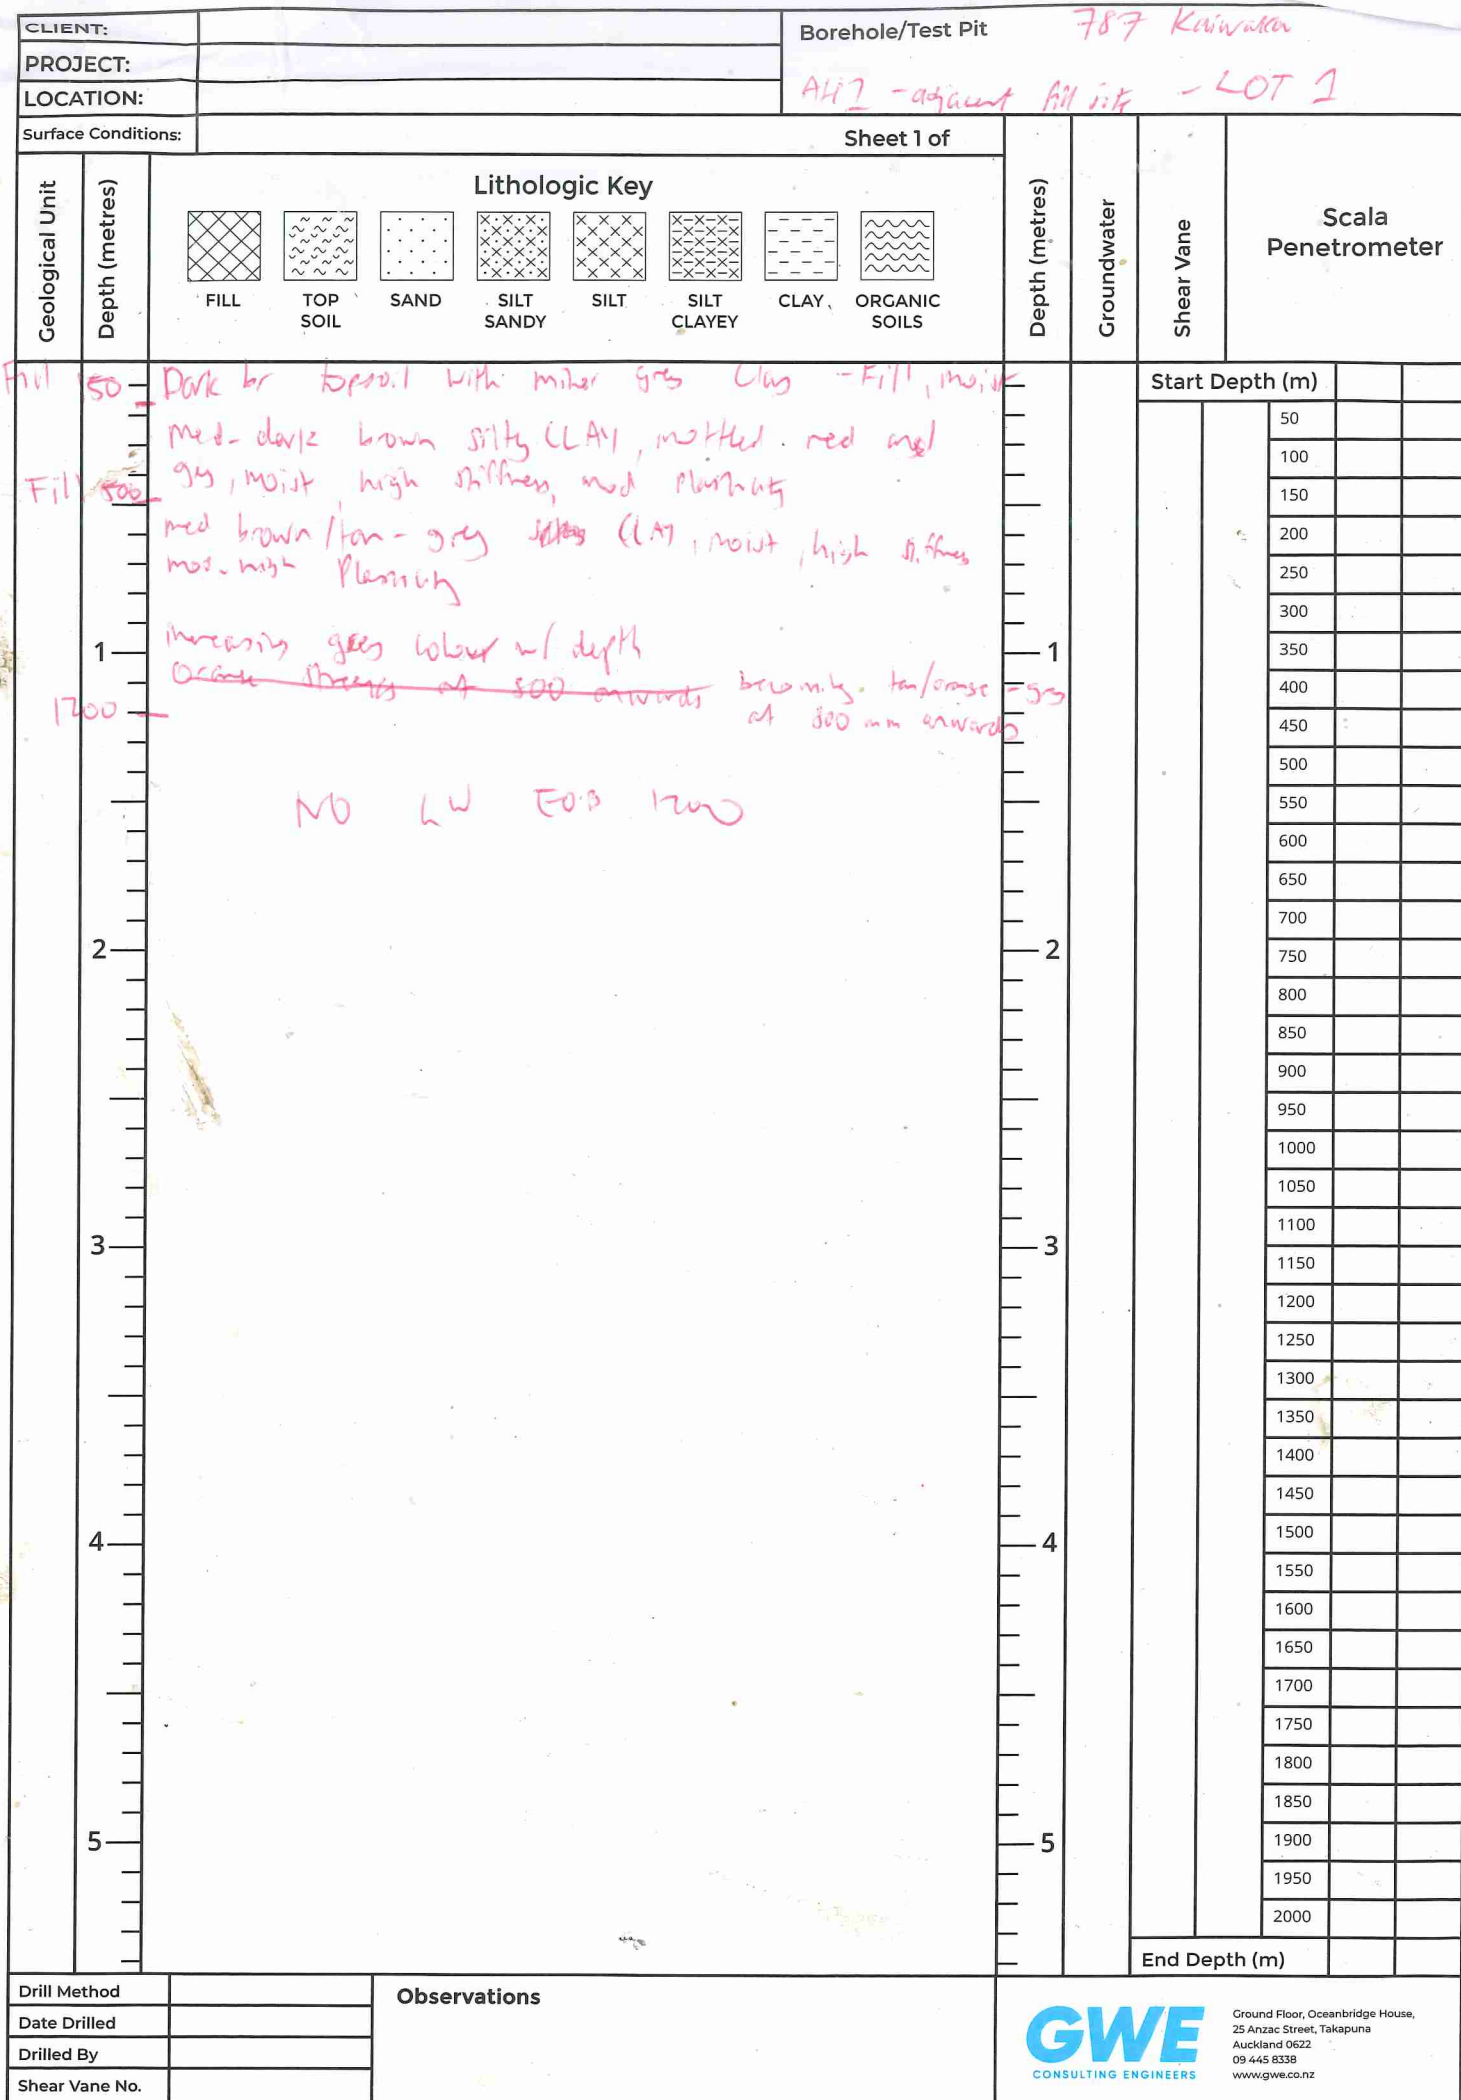 CLIENT:
PROJECT:
LOCATION:
Borehole/Test Pit 787 Kaiwaka
- adjacent fill site - LOT 1
Surface Conditions:
Sheet 1 of
Geological Unit
Depth (metres)
Lithologic Key
FILL
TOP SOIL
SAND
SILT SANDY
SILT
SILT CLAYEY
CLAY
ORGANIC SOILS
Depth (metres)
Groundwater
Shear Vane
Scala Penetrometer
Fill 150 Dark br topsoil with minor grey Clay - Fill, moist
med-dark brown silty CLAY, mottled red and
Fill 500 grey, moist, high stiffness, mod plasticity
med brown/tan-grey CLAY, moist, high stiffness
mod-high Plasticity
increasing grey colour w/ depth
Orange streaks at 800 onwards becoming tan/orange-grey
1200 at 800 mm onwards
NO GW EOB 1200
1
2
3
4
5
1
2
3
4
5
Start Depth (m)
50
100
150
200
250
300
350
400
450
500
550
600
650
700
750
800
850
900
950
1000
1050
1100
1150
1200
1250
1300
1350
1400
1450
1500
1550
1600
1650
1700
1750
1800
1850
1900
1950
2000
End Depth (m)
Drill Method
Date Drilled
Drilled By
Shear Vane No.
Observations
GWE
CONSULTING ENGINEERS
Ground Floor, Oceanbridge House,
25 Anzac Street, Takapuna
Auckland 0622
09 445 8338
www.gwe.co.nz